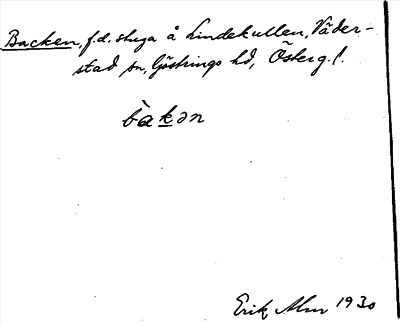 Backen, f.d. stuga å Lindekullen, Väder-
stad sn, Göstrings hd, Österg. l.
bàkən
Erik Alm 1930